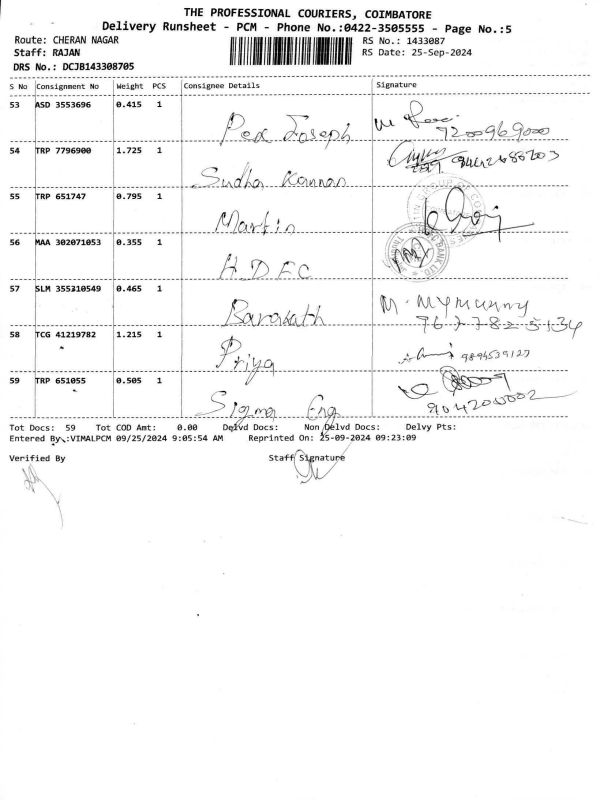 THE PROFESSIONAL COURIERS, COIMBATORE
Delivery Runsheet - PCM - Phone No.:0422-3505555 - Page No.:5
Route: CHERAN NAGAR RS No.: 1433087
Staff: RAJAN RS Date: 25-Sep-2024
DRS No.: DCJB143308705
S No Consignment No Weight PCS Consignee Details Signature
53 ASD 3553696 0.415 1
Joseph 7200969000
54 TRP 7796900 1.725 1
Sudha Kannan
55 TRP 651747 0.795 1
Martin
56 MAA 302071053 0.355 1
HDFC
57 SLM 355310549 0.465 1
Barakath M. Mymunny
9677825134
58 TCG 41219782 1.215 1
Priya 9894539127
59 TRP 651055 0.505 1
Sigma Eng 904200002
Tot Docs: 59 Tot COD Amt: 0.00 Delvd Docs: Non Delvd Docs: Delvy Pts:
Entered By :VIMALPCM 09/25/2024 9:05:54 AM Reprinted On: 25-09-2024 09:23:09
Verified By Staff Signature